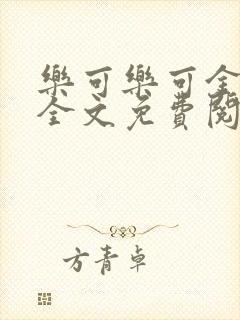 樂可樂可全
全文免費閱
方青卓